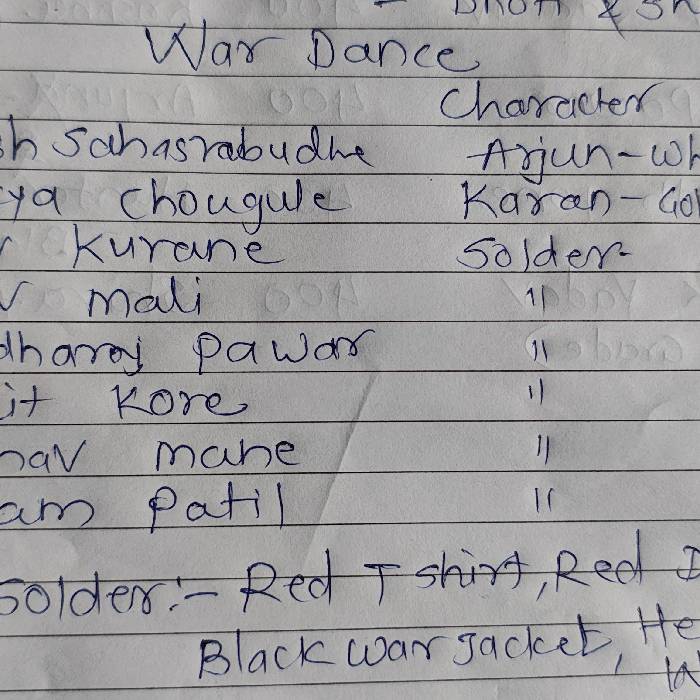 War Dance
Character
h Sahasrabudhe Arjun - Wh
ya Chougule Karan - Gol
Kurane Solder -
v mali "
dharaj Pawar "
it Kore "
hav mane "
am Patil "
Solder:- Red T shirt, Red D
Black war Jacket, He